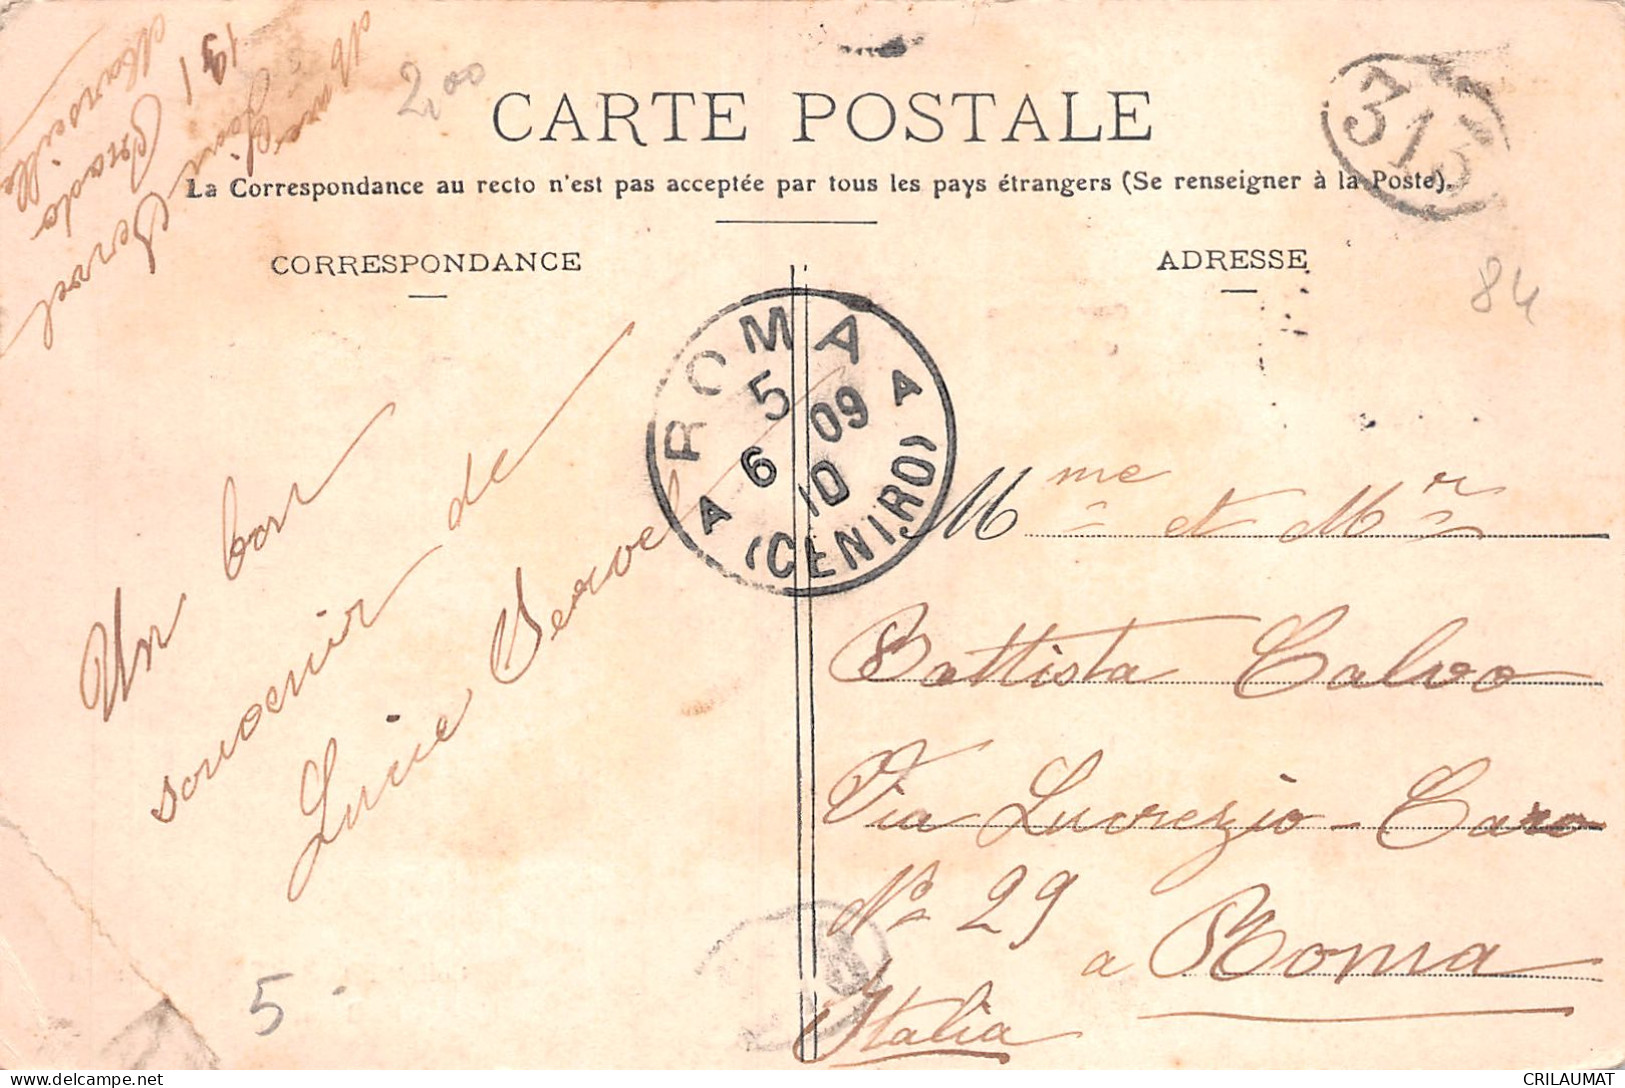 CARTE POSTALE
La Correspondance au recto n'est pas acceptée par tous les pays étrangers (Se renseigner à la Poste).
CORRESPONDANCE
ADRESSE
Mme Louise Vervel
191 Prado
Marseille
2,00
313
84
ROMA
5
6 09
10
A A
(CENTRO)
Un bon
souvenir de
Lucie Vervel
Mme et Mr
Battista Calvo
Via Lucrezio - Caro
No 29
a Roma
Italia
5
CRILAUMAT